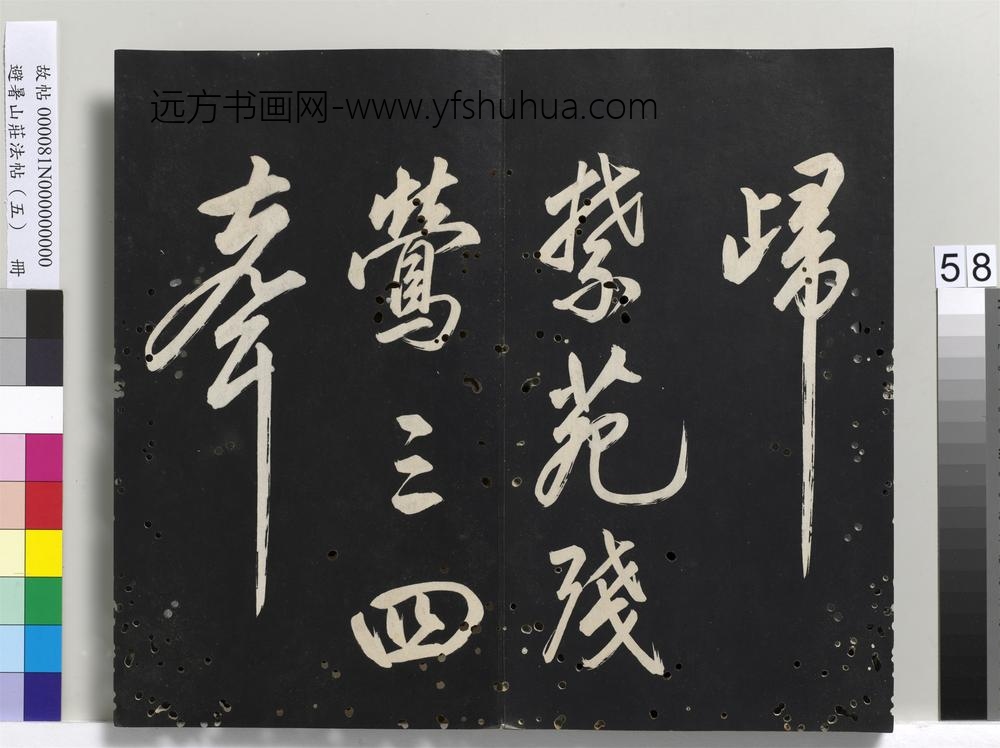 远方书画网-www.yfshuhua.com
歸
禁苑殘
鶯三四
聲
故帖 000081N000000000
避暑山莊法帖（五） 冊
58